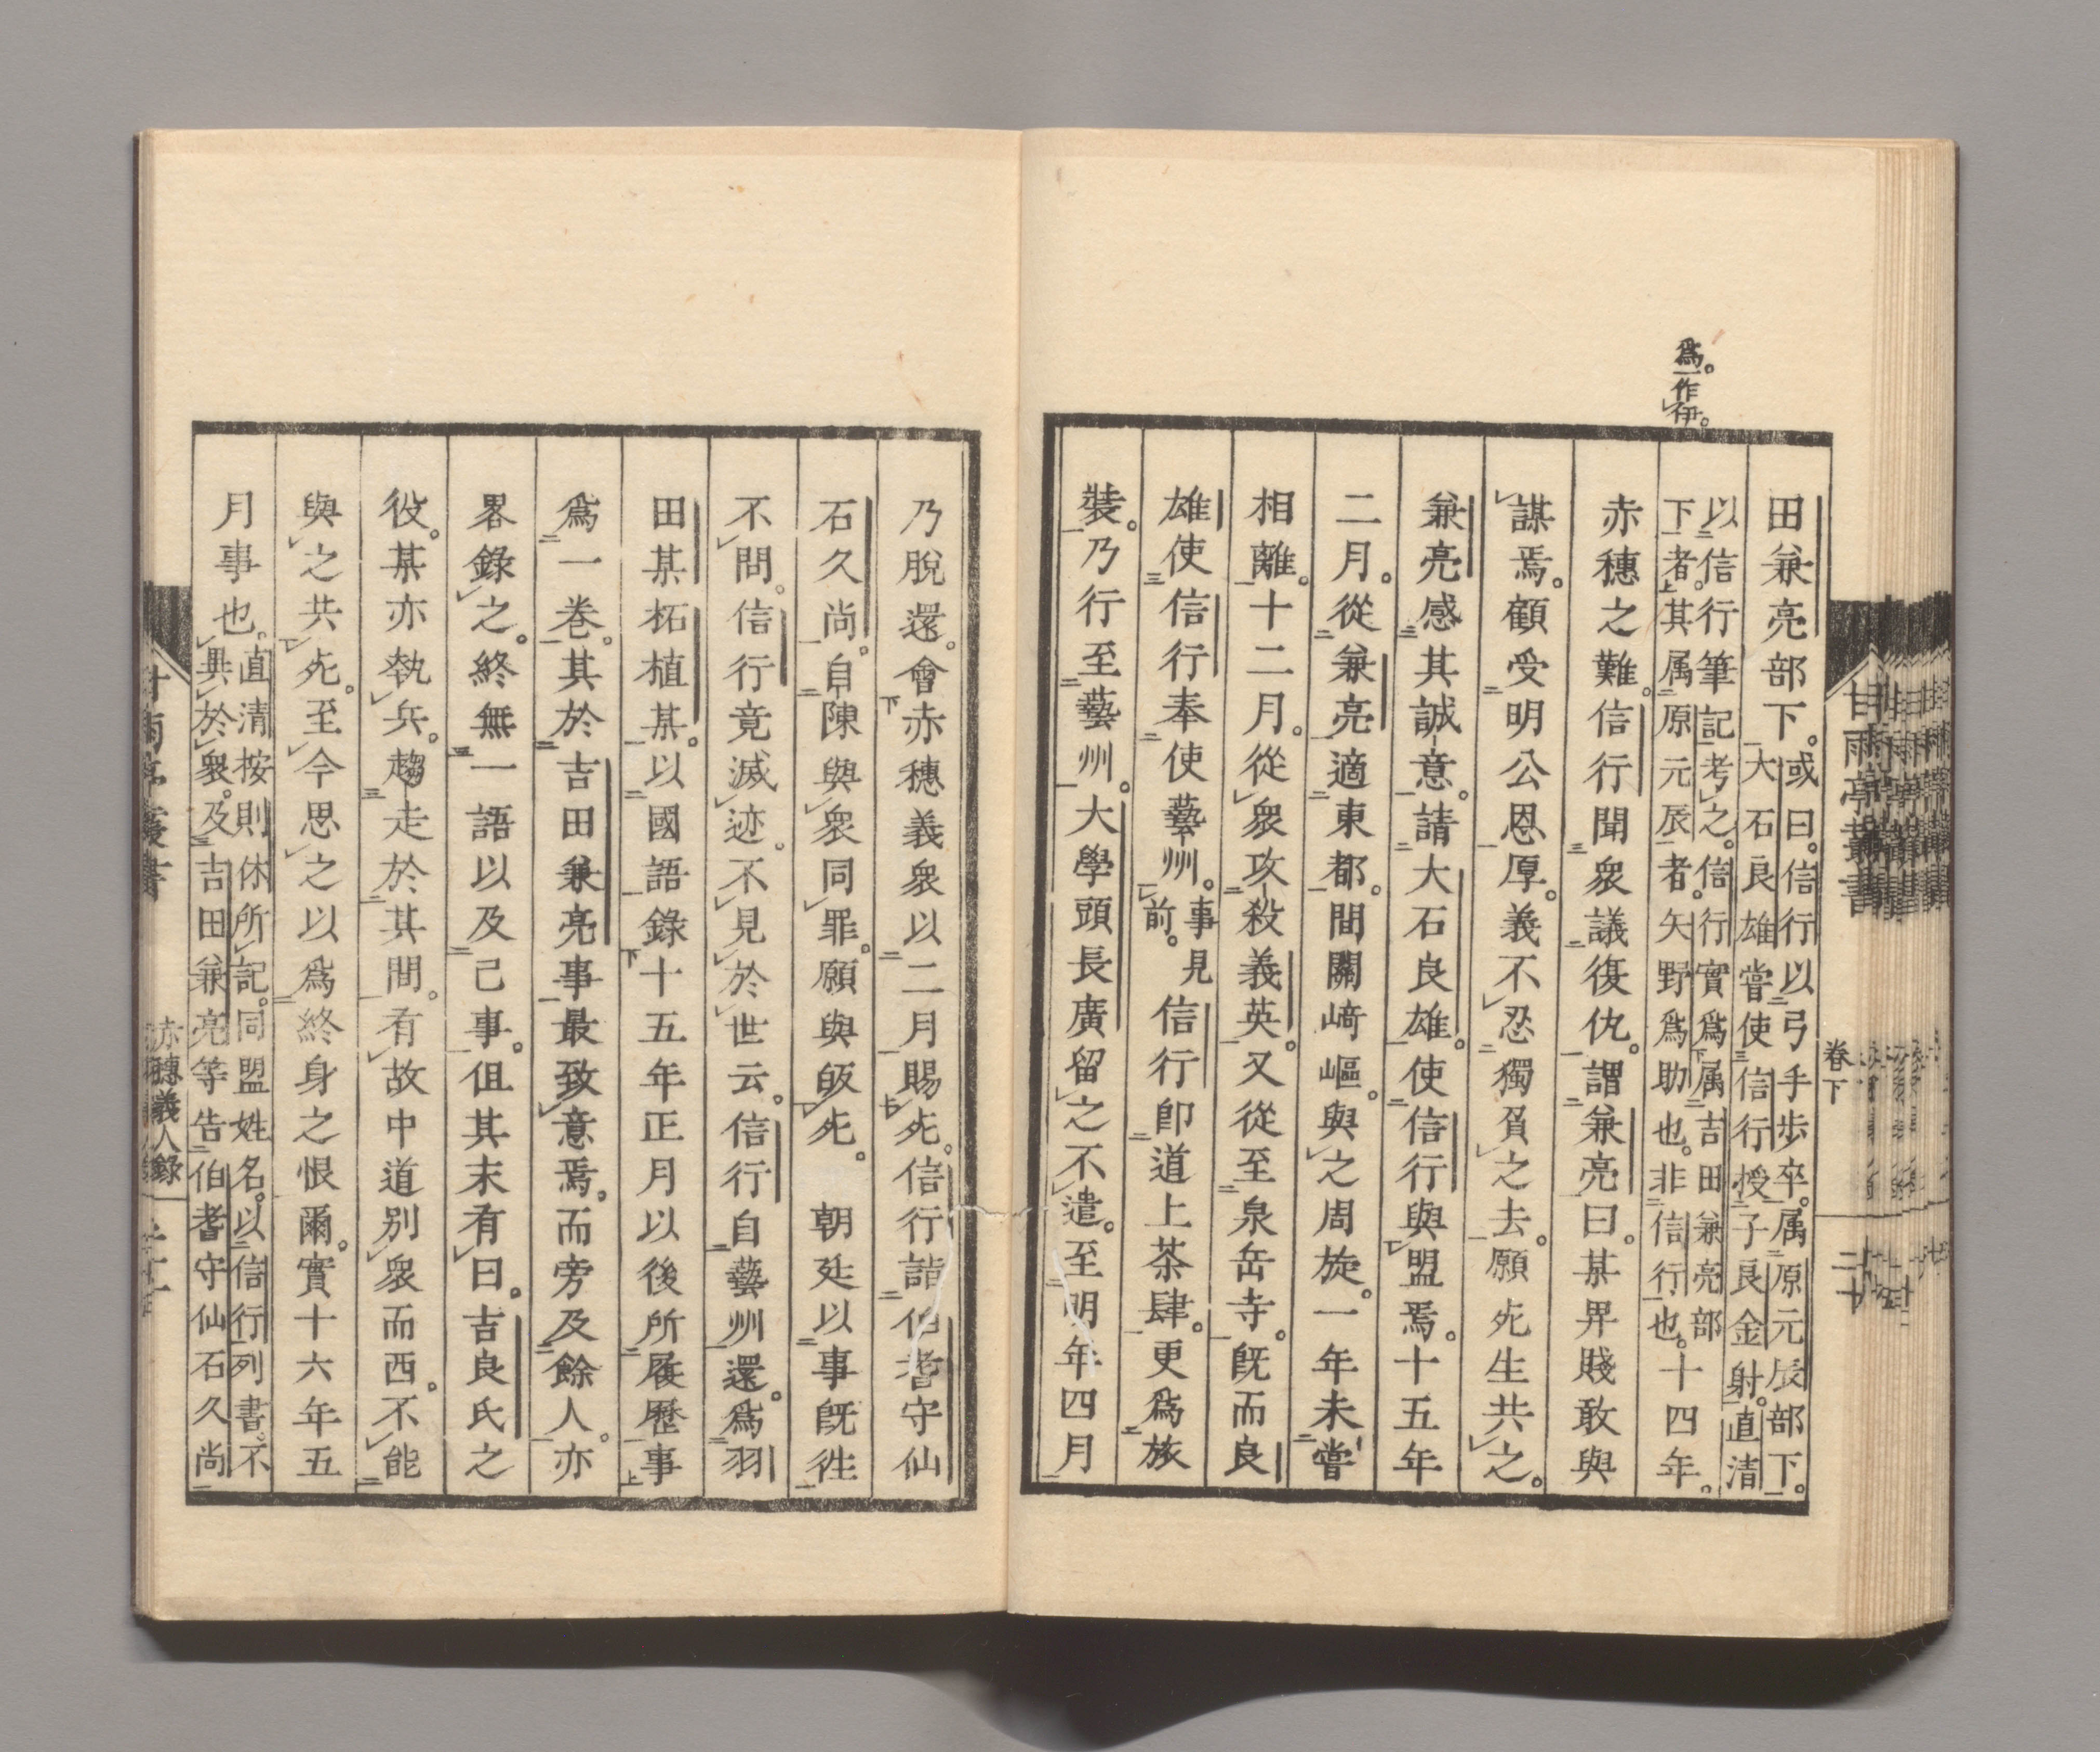 為。一作伊。
田兼亮部下。或曰。信行以弓手歩卒。属原元辰部下。
大石良雄嘗使信行授子良金射。直清
以信行筆記考之。信行實為属吉田兼亮部
下者。其属原元辰者。矢野為助也。非信行也。十四年。
赤穂之難。信行聞衆議復仇。謂兼亮曰。某畀賤敢與
謀焉。顧受明公恩厚。義不忍獨負之去。願死生共之。
兼亮感其誠意。請大石良雄。使信行與盟焉。十五年
二月。從兼亮適東都。間關﨑嶇。與之周旋。一年未嘗
相離。十二月。從衆攻殺義英。又從至泉岳寺。既而良
雄使信行奉使藝州。事見前。信行即道上茶肆。更為旅
裝。乃行至藝州。大學頭長廣留之不遣。至明年四月
甘雨亭叢書
卷下
二十
乃脱還。會赤穂義衆以二月賜死。信行詣伯耆守仙
石久尚。自陳與衆同罪。願與皈死。朝廷以事既徃
不問。信行竟滅迹。不見於世云。信行自藝州還。為羽
田某柘植某。以國語錄十五年正月以後所履歴事
為一巻。其於吉田兼亮事最致意焉。而旁及餘人。亦
畧錄之。終無一語以及己事。但其末有曰。吉良氏之
役。某亦執兵。趨走於其間。有故中道別衆而西。不能
與之共死。至今思之以為終身之恨爾。實十六年五
月事也。直清按則休所記。同盟姓名。以信行列書。不
具於衆。及吉田兼亮等告伯耆守仙石久尚
甘雨亭叢書
赤穂義人錄